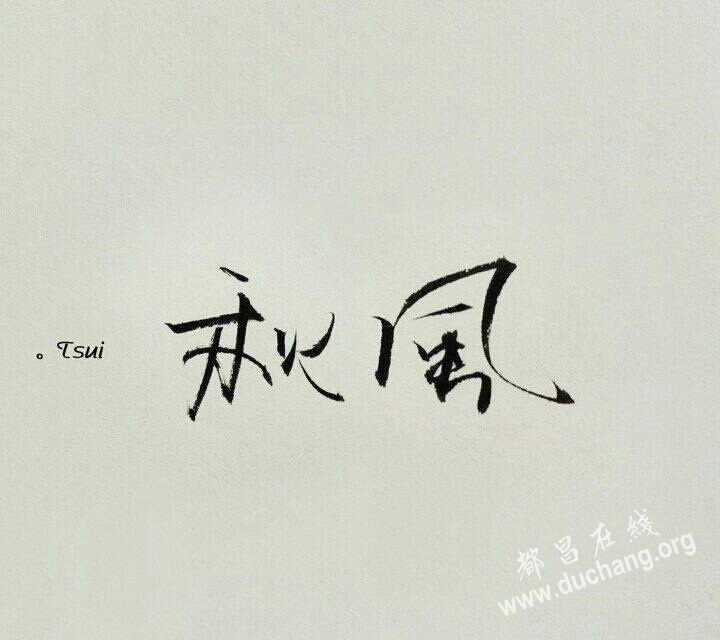 。Tsui
秋風
都昌在綫
www.duchang.org